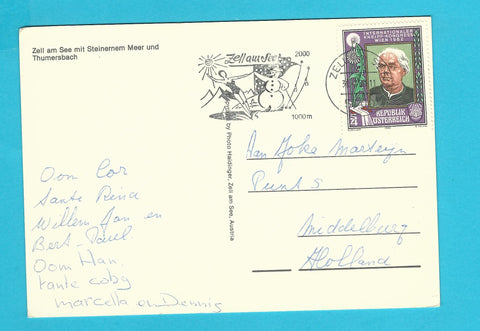 Zell am See mit Steinernem Meer und
Thumersbach
Zell am See
2000
1000m
ZELL
INTERNATIONALER
KNEIPP-KONGRESS
WIEN 1982
S 4
REPUBLIK
ÖSTERREICH
by Photo Haidinger, Zell am See, Austria
Oom Cor
tante Rina
Willem Jan en
Bert-Paul.
Oom Han.
tante Coby
marcella en Dennis
Aan Joke Marteyn
Punt 5
Middelburg
Holland